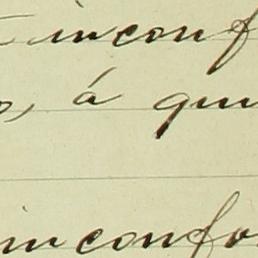 inconf
á qui
inconfor